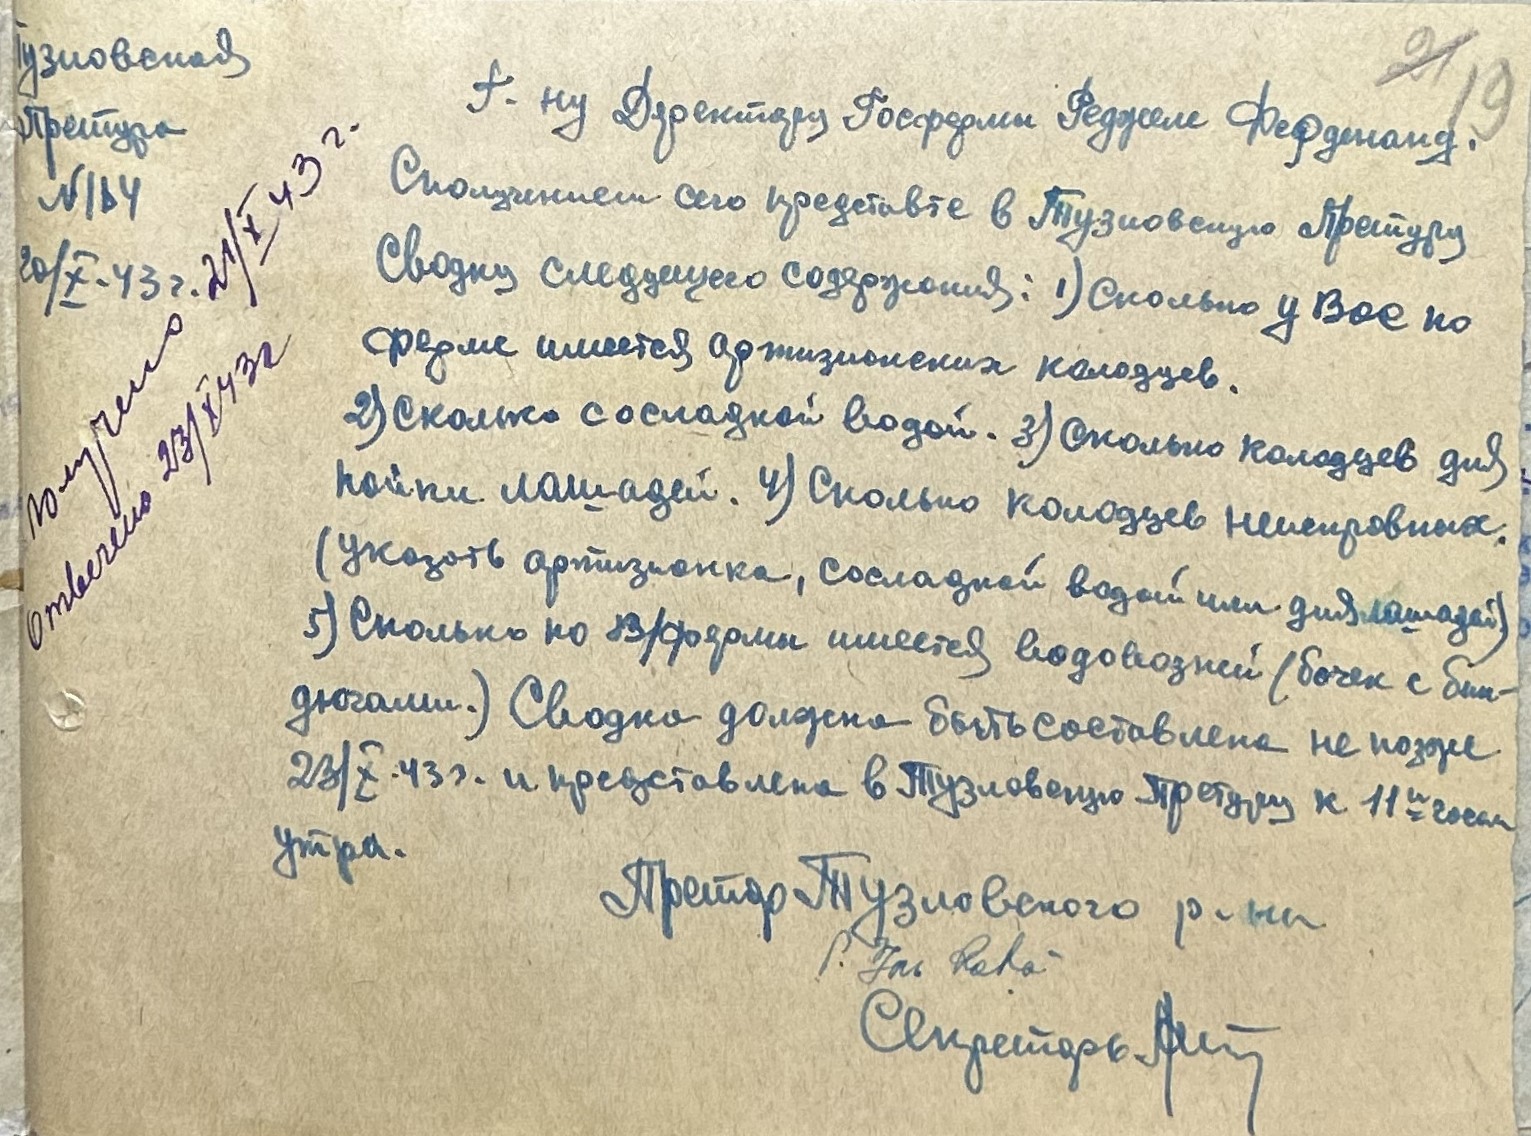 Тузловская
Претура
N184
20/X-43 г.
Получено 21/X 43 г.
Отвечено 23/X 43 г
21
19
Г-ну Директору Госфермы Фердинанд.
Сполучением сего представте в Тузловскую Претуру
Сводку следующего содержания: 1) Сколько у Вас на
ферме имеется артизионских колодцев.
2) Сколько сосладкой водой. 3) Сколько колодцев для
пойки лашадей. 4) Сколько колодцев неисправных.
(указать артизионка, сосладкой водой или для лашадей)
5) Сколько на В/фермы имеется водовозней (бочек с бин-
дюгами.) Сводка должна быть составлена не позже
23/X-43 г. и представлена в Тузловскую Претуру к 11и часам
утра.
Претор Тузловского р-на
Секретарь